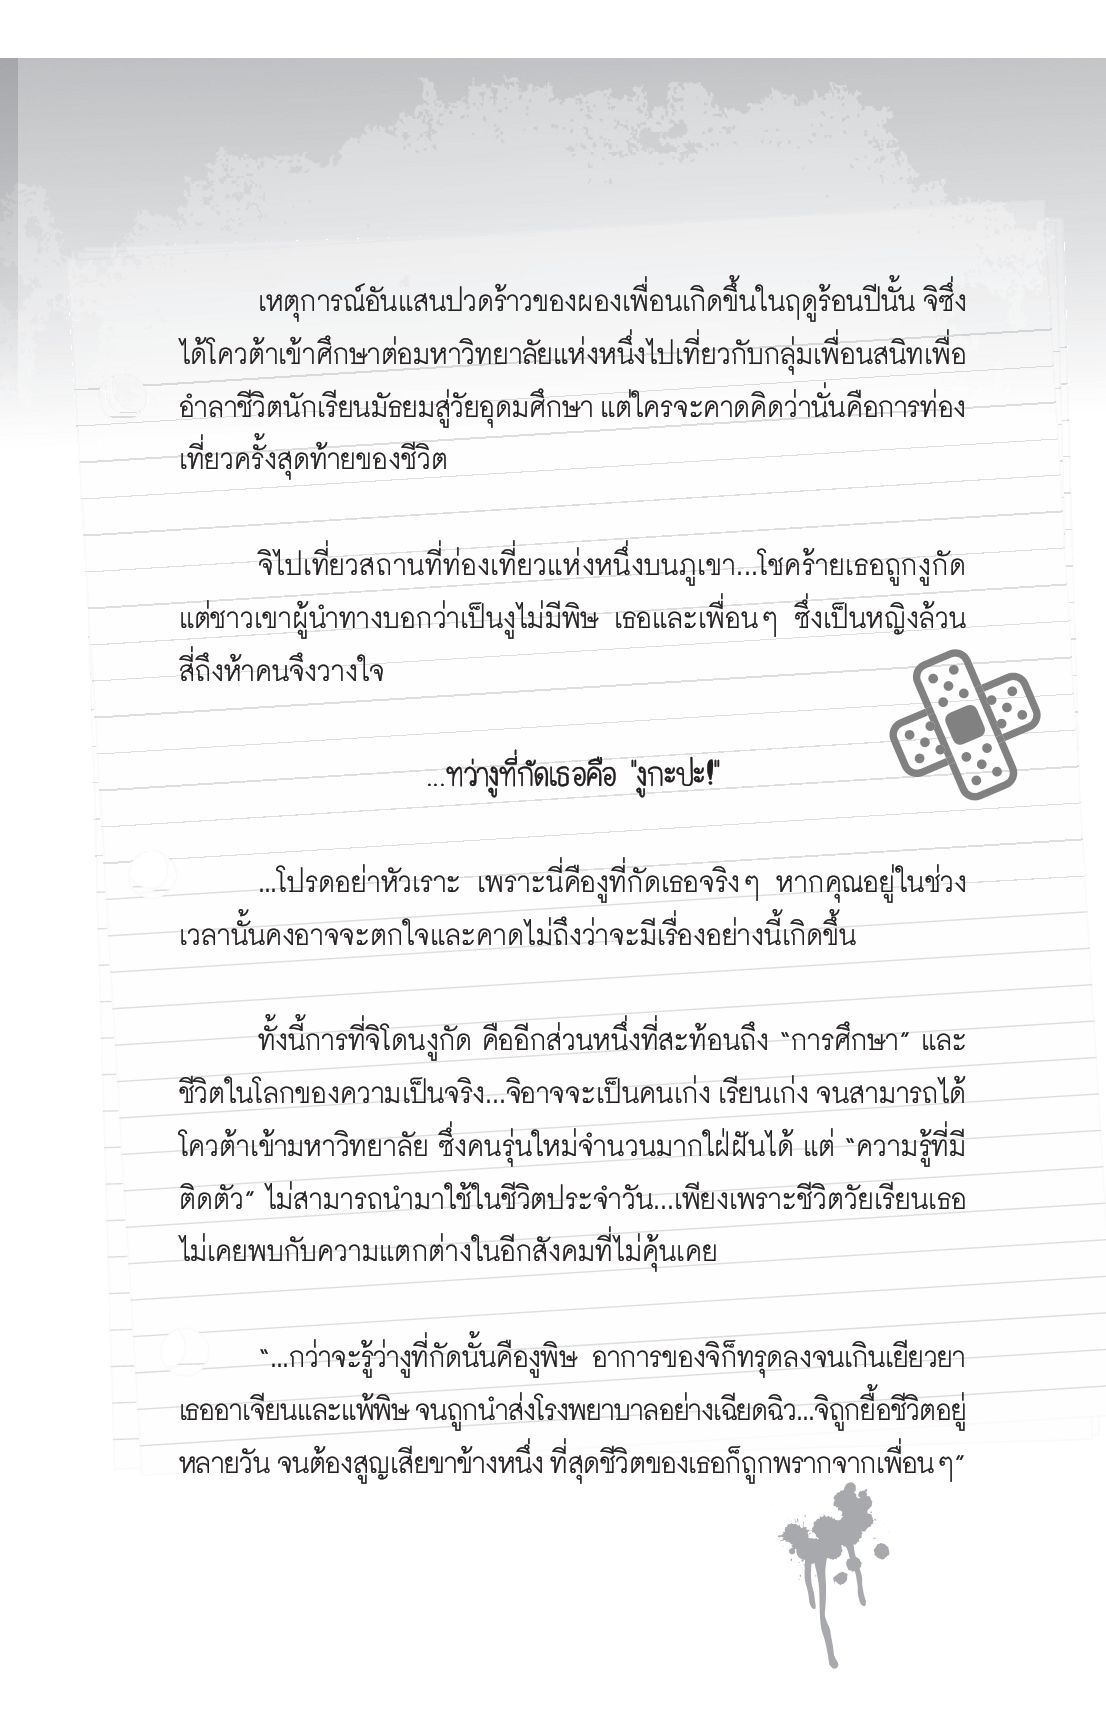 เหตุการณ์อันแสนปวดร้าวของผองเพื่อนเกิดขึ้นในฤดูร้อนปีนั้น จิซึ่ง
ได้โควต้าเข้าศึกษาต่อมหาวิทยาลัยแห่งหนึ่งไปเที่ยวกับกลุ่มเพื่อนสนิทเพื่อ
อำลาชีวิตนักเรียนมัธยมสู่วัยอุดมศึกษา แต่ใครจะคาดคิดว่านั่นคือการท่อง
เที่ยวครั้งสุดท้ายของชีวิต
จิไปเที่ยวสถานที่ท่องเที่ยวแห่งหนึ่งบนภูเขา...โชคร้ายเธอถูกงูกัด
แต่ชาวเขาผู้นำทางบอกว่าเป็นงูไม่มีพิษ เธอและเพื่อนๆ ซึ่งเป็นหญิงล้วน
สี่ถึงห้าคนจึงวางใจ
...ทว่างูที่กัดเธอคือ "งูกะปะ!"
...โปรดอย่าหัวเราะ เพราะนี่คืองูที่กัดเธอจริงๆ หากคุณอยู่ในช่วง
เวลานั้นคงอาจจะตกใจและคาดไม่ถึงว่าจะมีเรื่องอย่างนี้เกิดขึ้น
ทั้งนี้การที่จิโดนงูกัด คืออีกส่วนหนึ่งที่สะท้อนถึง “การศึกษา” และ
ชีวิตในโลกของความเป็นจริง...จิอาจจะเป็นคนเก่ง เรียนเก่ง จนสามารถได้
โควต้าเข้ามหาวิทยาลัย ซึ่งคนรุ่นใหม่จำนวนมากใฝ่ฝันได้ แต่ “ความรู้ที่มี
ติดตัว” ไม่สามารถนำมาใช้ในชีวิตประจำวัน...เพียงเพราะชีวิตวัยเรียนเธอ
ไม่เคยพบกับความแตกต่างในอีกสังคมที่ไม่คุ้นเคย
“...กว่าจะรู้ว่างูที่กัดนั้นคืองูพิษ อาการของจิก็ทรุดลงจนเกินเยียวยา
เธออาเจียนและแพ้พิษ จนถูกนำส่งโรงพยาบาลอย่างเฉียดฉิว...จิถูกยื้อชีวิตอยู่
หลายวัน จนต้องสูญเสียขาข้างหนึ่ง ที่สุดชีวิตของเธอก็ถูกพรากจากเพื่อนๆ”